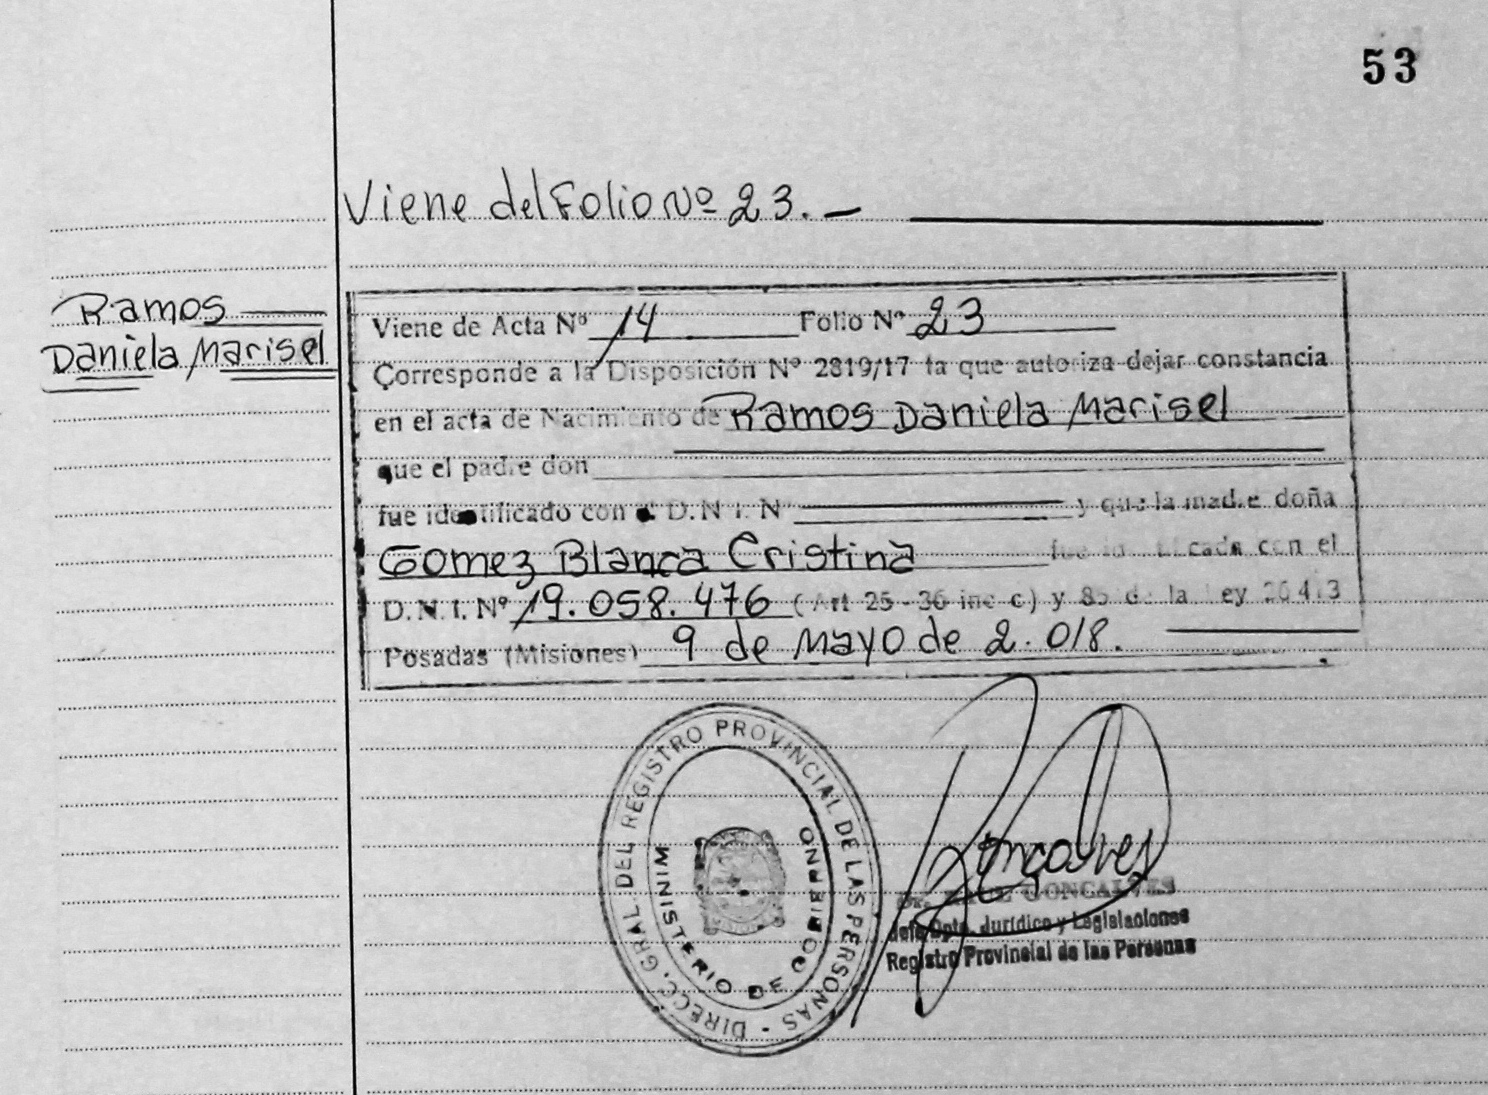 53
Viene del Folio Nº 23.—
Ramos
Daniela Marisel
Viene de Acta Nº 14 Folio Nº 23
Corresponde a la Disposición Nº 2819/17 la que autoriza dejar constancia
en el acta de Nacimiento de Ramos Daniela Marisel
que el padre don
fue identificado con el D.N.I. Nº y que la madre doña
Gomez Blanca Cristina fue identificada con el
D.N.I. Nº 19.058.476 (Art 25-36 inc c) y 85 de la Ley 26413
Posadas (Misiones) 9 de Mayo de 2.018.
DIRECC. GRAL. DEL REGISTRO PROVINCIAL DE LAS PERSONAS -
MINISTERIO DE GOBIERNO
Goncalves
Dr. GONCALVES
Jefe Dpto. Jurídico y Legislaciones
Registro Provincial de las Personas